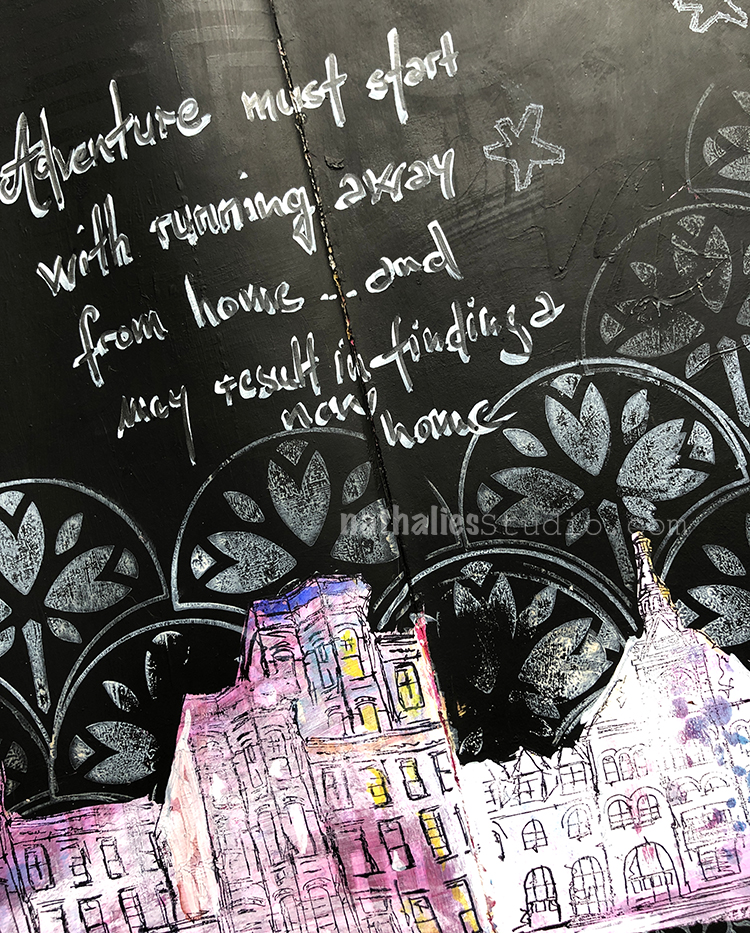 Adventure must start
with running away
from home ... and
may result in finding a
new home
nathaliesstudio.com